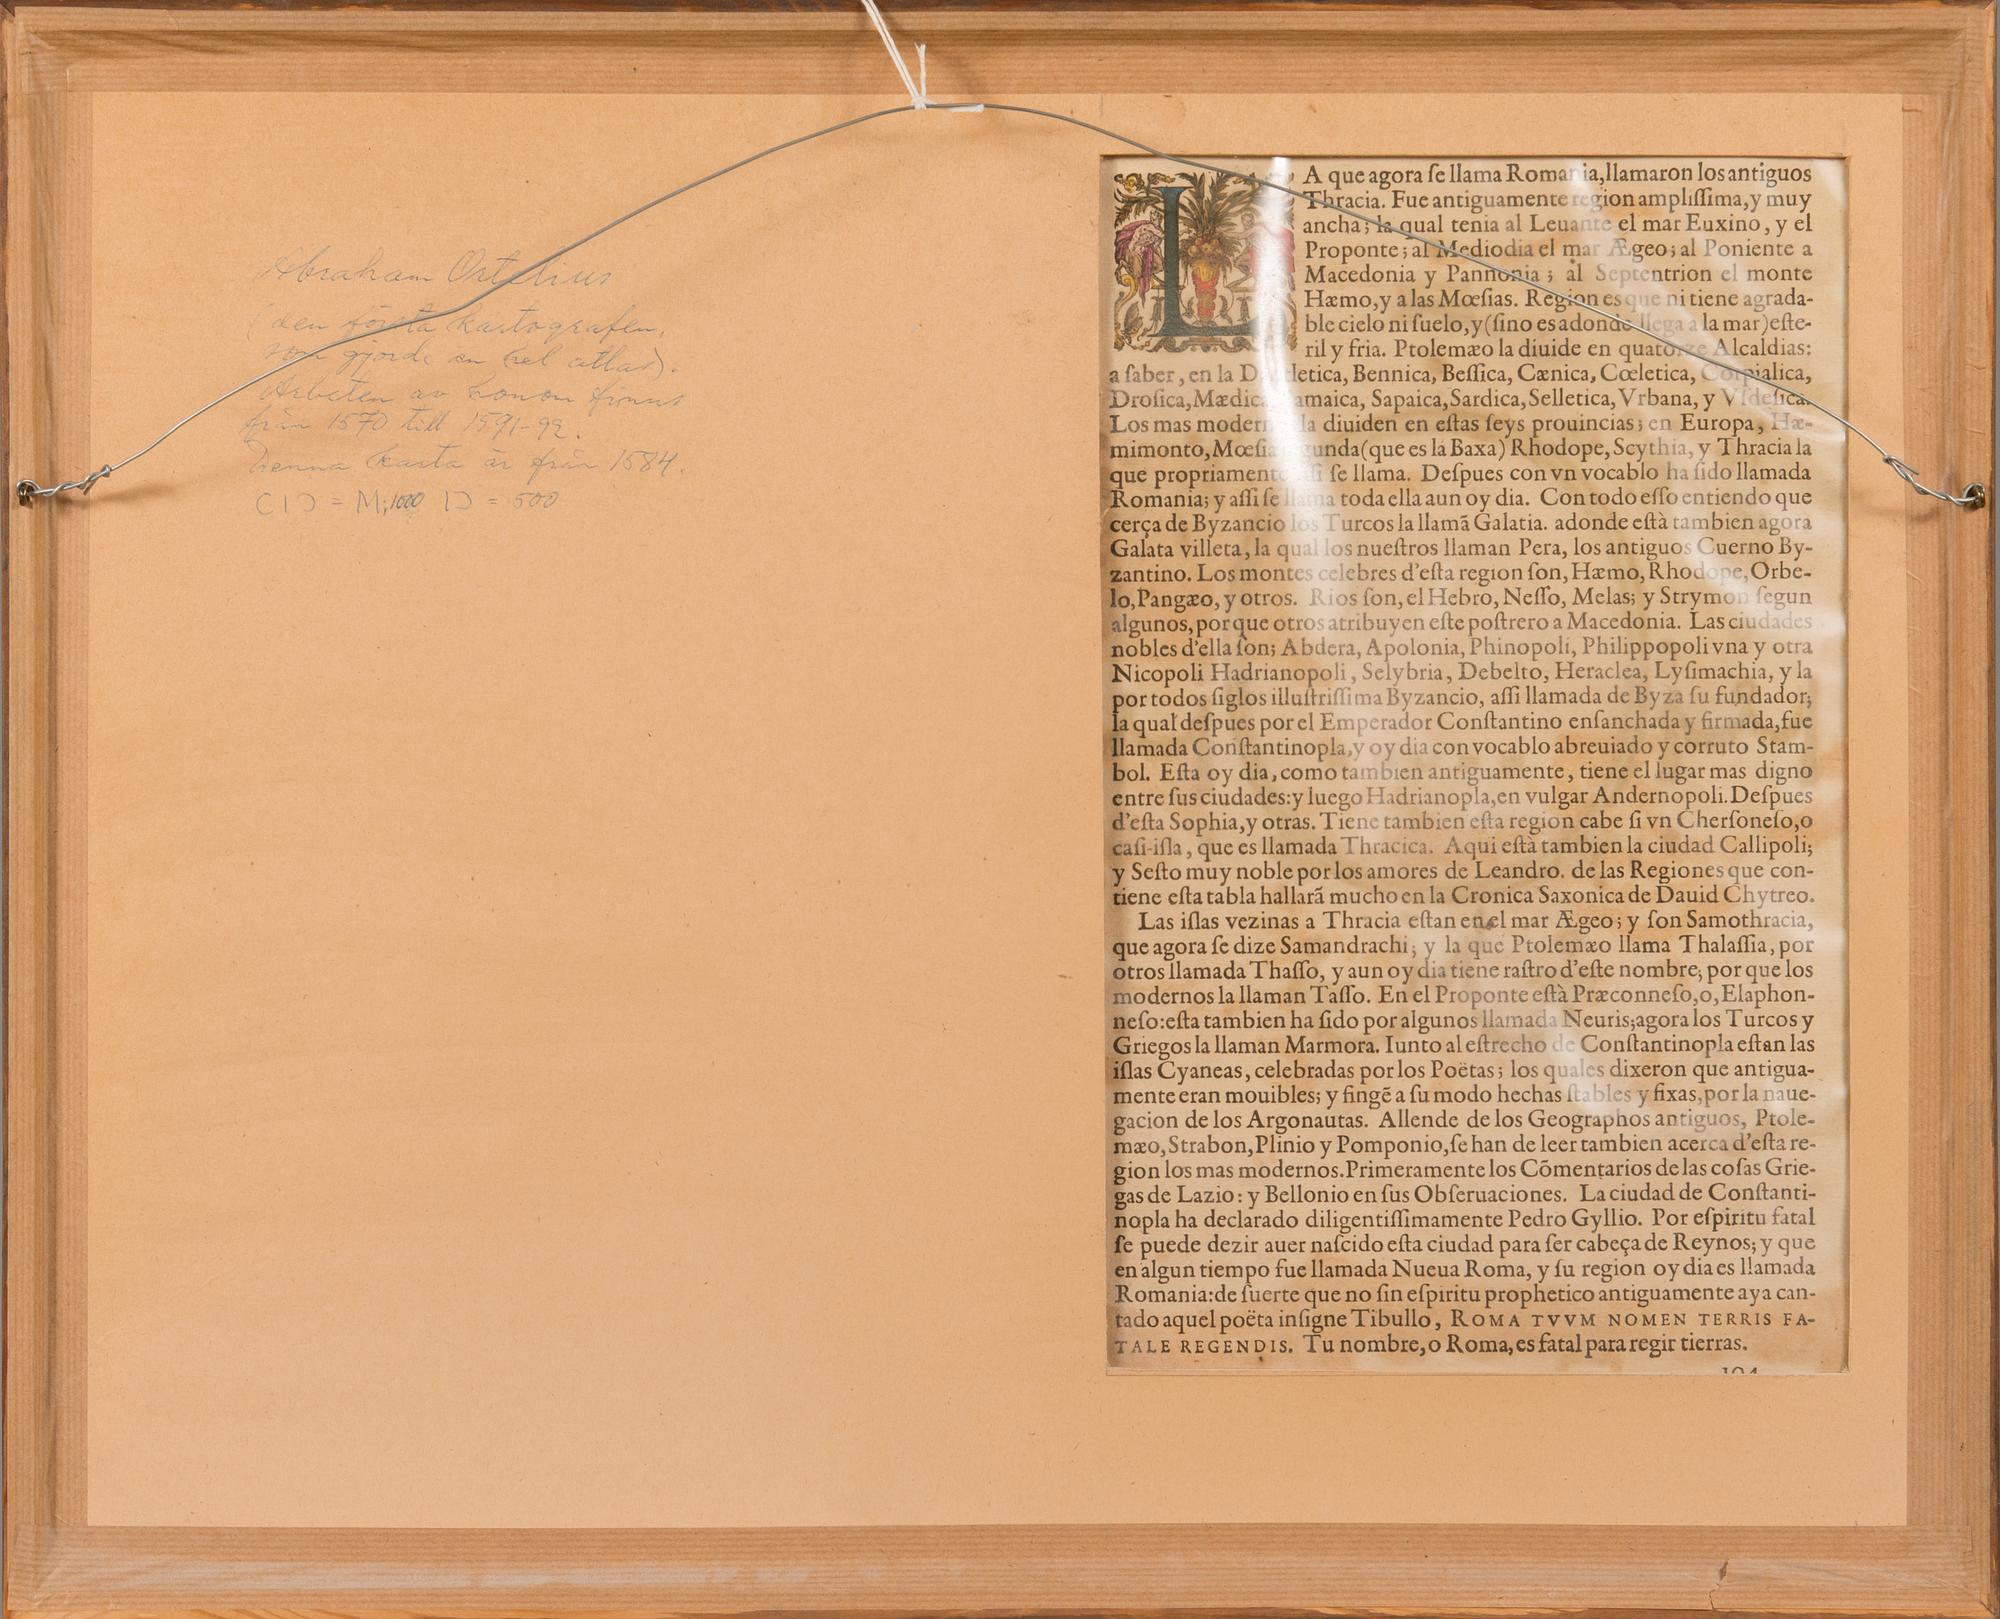 Abraham Ortelius
(den första kartografen,
som gjorde en hel atlas).
Arbeten av honom finns
från 1570 till 1591-92.
Denna karta är från 1584.
C I Ɔ = M; 1000 I Ɔ = 500
LA que agora ſe llama Romania, llamaron los antiguos
Thracia. Fue antiguamente region ampliſſima, y muy
ancha; la qual tenia al Leuante el mar Euxino, y el
Proponte; al Mediodia el mar Ægeo; al Poniente a
Macedonia y Pannonia; al Septentrion el monte
Hæmo, y a las Mœſias. Region es que ni tiene agrada-
ble cielo ni ſuelo, y (ſino es adonde llega a la mar) eſte-
ril y fria. Ptolemæo la diuide en quatorze Alcaldias:
a ſaber, en la Dantheletica, Bennica, Beſſica, Cænica, Cœletica, Corpialica,
Droſica, Mædica, Samaica, Sapaica, Sardica, Selletica, Vrbana, y Vſdeſica.
Los mas modernos la diuiden en eſtas ſeys prouincias; en Europa, Hæ-
mimonto, Mœſia ſegunda (que es la Baxa) Rhodope, Scythia, y Thracia la
que propriamente aſſi ſe llama. Deſpues con vn vocablo ha ſido llamada
Romania; y aſſi ſe llama toda ella aun oy dia. Con todo eſſo entiendo que
cerça de Byzancio los Turcos la llamã Galatia. adonde eſtà tambien agora
Galata villeta, la qual los nueſtros llaman Pera, los antiguos Cuerno By-
zantino. Los montes celebres d'eſta region ſon, Hæmo, Rhodope, Orbe-
lo, Pangæo, y otros. Rios ſon, el Hebro, Neſſo, Melas; y Strymon ſegun
algunos, por que otros atribuyen eſte poſtrero a Macedonia. Las ciudades
nobles d'ella ſon; Abdera, Apolonia, Phinopoli, Philippopoli vna y otra
Nicopoli Hadrianopoli, Selybria, Debelto, Heraclea, Lyſimachia, y la
por todos ſiglos illuſtriſſima Byzancio, aſſi llamada de Byza ſu fundador;
la qual deſpues por el Emperador Conſtantino enſanchada y firmada, fue
llamada Conſtantinopla, y oy dia con vocablo abreuiado y corruto Stam-
bol. Eſta oy dia, como tambien antiguamente, tiene el lugar mas digno
entre ſus ciudades: y luego Hadrianopla, en vulgar Andernopoli. Deſpues
d'eſta Sophia, y otras. Tiene tambien eſta region cabe ſi vn Cherſoneſo, o
caſi-iſla, que es llamada Thracica. Aqui eſtà tambien la ciudad Callipoli;
y Seſto muy noble por los amores de Leandro. de las Regiones que con-
tiene eſta tabla hallarã mucho en la Cronica Saxonica de Dauid Chytreo.
Las iſlas vezinas a Thracia eſtan en el mar Ægeo; y ſon Samothracia,
que agora ſe dize Samandrachi; y la que Ptolemæo llama Thalaſſia, por
otros llamada Thaſſo, y aun oy dia tiene raſtro d'eſte nombre; por que los
modernos la llaman Taſſo. En el Proponte eſtà Præconneſo, o, Elaphon-
neſo: eſta tambien ha ſido por algunos llamada Neuris; agora los Turcos y
Griegos la llaman Marmora. Iunto al eſtrecho de Conſtantinopla eſtan las
iſlas Cyaneas, celebradas por los Poëtas; los quales dixeron que antigua-
mente eran mouibles; y fingẽ a ſu modo hechas ſtables y fixas, por la naue-
gacion de los Argonautas. Allende de los Geographos antiguos, Ptole-
mæo, Strabon, Plinio y Pomponio, ſe han de leer tambien acerca d'eſta re-
gion los mas modernos. Primeramente los Cõmentarios de las coſas Grie-
gas de Lazio: y Bellonio en ſus Obſeruaciones. La ciudad de Conſtanti-
nopla ha declarado diligentiſſimamente Pedro Gyllio. Por eſpiritu fatal
ſe puede dezir auer naſcido eſta ciudad para ſer cabeça de Reynos; y que
en algun tiempo fue llamada Nueua Roma, y ſu region oy dia es llamada
Romania: de ſuerte que no ſin eſpiritu prophetico antiguamente aya can-
tado aquel poëta inſigne Tibullo, ROMA TVVM NOMEN TERRIS FA-
TALE REGENDIS. Tu nombre, o Roma, es fatal para regir tierras.